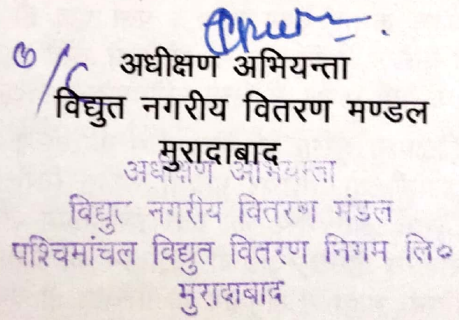 अधीक्षण अभियन्ता
विद्युत नगरीय वितरण मण्डल
मुरादाबाद
अधीक्षण अभियन्ता
विद्युत नगरीय वितरण मंडल
पश्चिमांचल विद्युत वितरण निगम लि०
मुरादाबाद